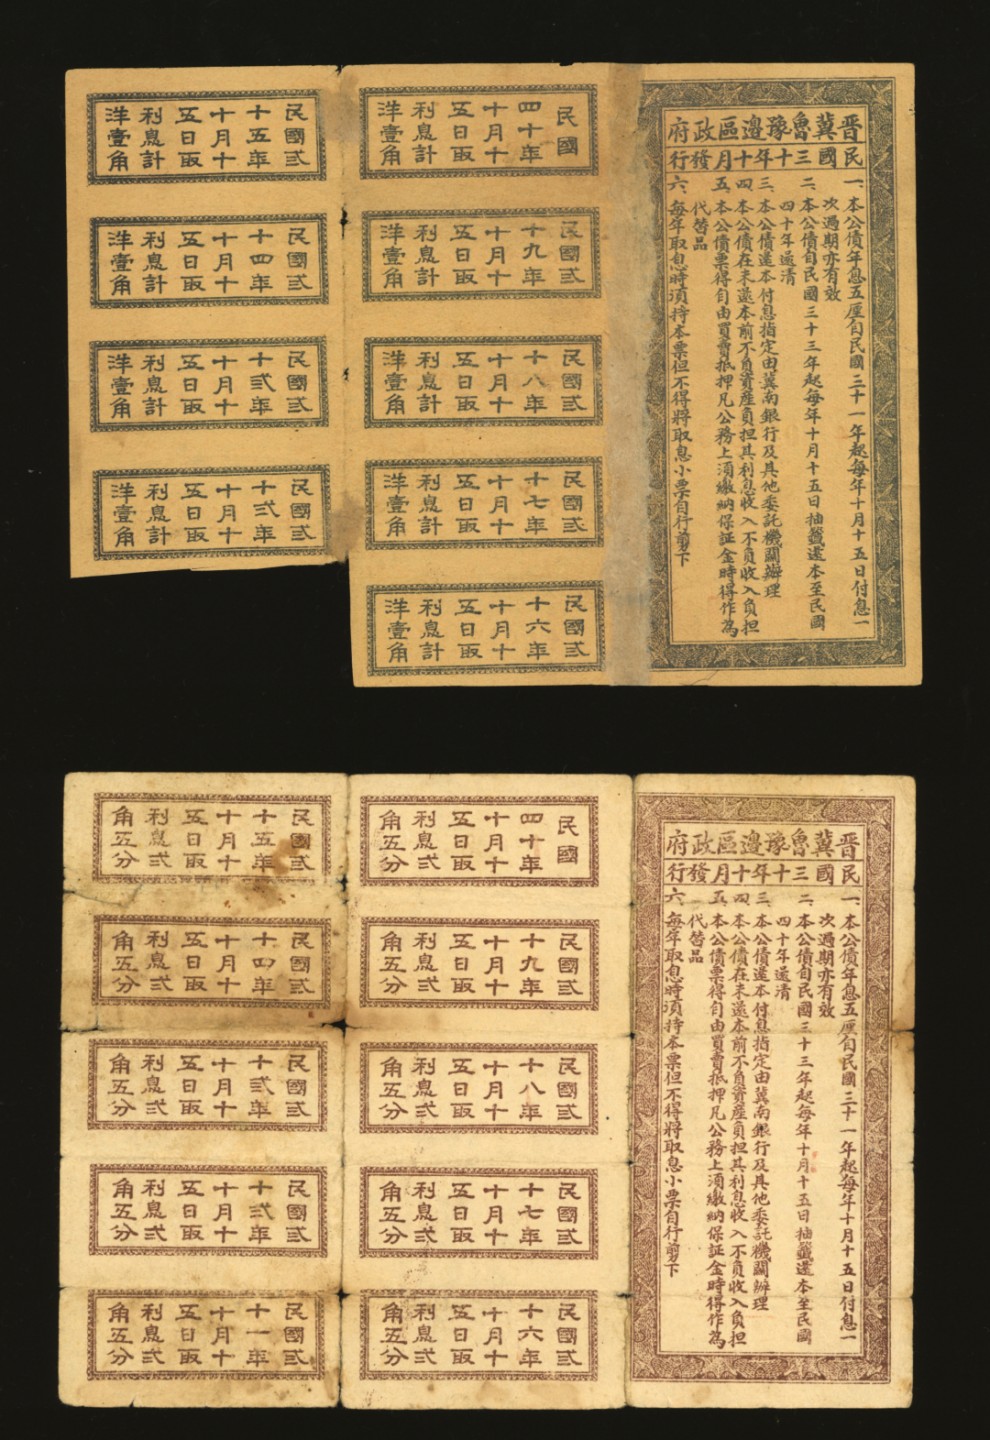 晉冀魯豫邊區政府
民國三十年十月發行
一、本公債年息五厘自民國三十一年起每年十月十五日付息一
次過期亦有效
二、本公債自民國三十三年起每年十月十五日抽籤還本至民國
四十年還清
三、本公債還本付息指定由冀南銀行及其他委託機關辦理
四、本公債在未還本前不負資產負担其利息收入不負收入負担
五、本公債票得自由買賣抵押凡公務上須繳納保証金時得作為
代替品
六、每年取息時須持本票但不得將取息小票自行剪下
民國
四十年
十月十
五日取
利息計
洋壹角
民國弎
十九年
十月十
五日取
利息計
洋壹角
民國弎
十八年
十月十
五日取
利息計
洋壹角
民國弎
十七年
十月十
五日取
利息計
洋壹角
民國弎
十六年
十月十
五日取
利息計
洋壹角
民國弎
十五年
十月十
五日取
利息計
洋壹角
民國弎
十四年
十月十
五日取
利息計
洋壹角
民國弎
十弎年
十月十
五日取
利息計
洋壹角
民國弎
十弍年
十月十
五日取
利息計
洋壹角
晉冀魯豫邊區政府
民國三十年十月發行
一、本公債年息五厘自民國三十一年起每年十月十五日付息一
次過期亦有效
二、本公債自民國三十三年起每年十月十五日抽籤還本至民國
四十年還清
三、本公債還本付息指定由冀南銀行及其他委託機關辦理
四、本公債在未還本前不負資產負担其利息收入不負收入負担
五、本公債票得自由買賣抵押凡公務上須繳納保証金時得作為
代替品
六、每年取息時須持本票但不得將取息小票自行剪下
民國
四十年
十月十
五日取
利息弍
角五分
民國弎
十九年
十月十
五日取
利息弍
角五分
民國弎
十八年
十月十
五日取
利息弍
角五分
民國弎
十七年
十月十
五日取
利息弍
角五分
民國弎
十六年
十月十
五日取
利息弍
角五分
民國弎
十五年
十月十
五日取
利息弍
角五分
民國弎
十四年
十月十
五日取
利息弍
角五分
民國弎
十弎年
十月十
五日取
利息弍
角五分
民國弎
十弍年
十月十
五日取
利息弍
角五分
民國弎
十一年
十月十
五日取
利息弍
角五分